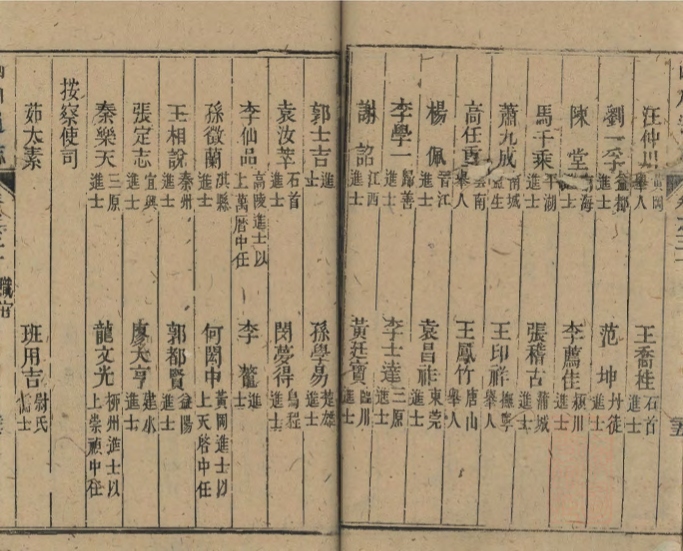 汪仲川 黃岡舉人 王喬桂 石首進士
劉一季 益都進士 范坤 丹徒進士
陳堂 海進士 李薦佳 潁川進士
馬千乘 平湖進士 張稽古 蒲城進士
蕭九成 南城監生 王印祥 撫寧舉人
高任重 雲南舉人 王鳳竹 唐山舉人
楊佩 晉江進士 袁昌祚 東莞進士
李學一 歸善進士 李士達 三原進士
謝詔 江西進士 黃廷寶 臨川進士
郭士吉 進士 孫學易 楚雄進士
袁汝萃 石首進士 閔夢得 烏程進士
李仙品 高陵進士以上萬曆中任 李 進士
孫徵蘭 淇縣進士 何閎中 黃岡進士以上天啓中任
王相說 秦州進士 郭都賢 益陽進士
張定志 宜興進士 廖大亨 建水進士
秦樂天 三原進士 龍文光 柳州進士以上崇禎中任
按察使司
茹太素 班用吉 尉氏士
職官